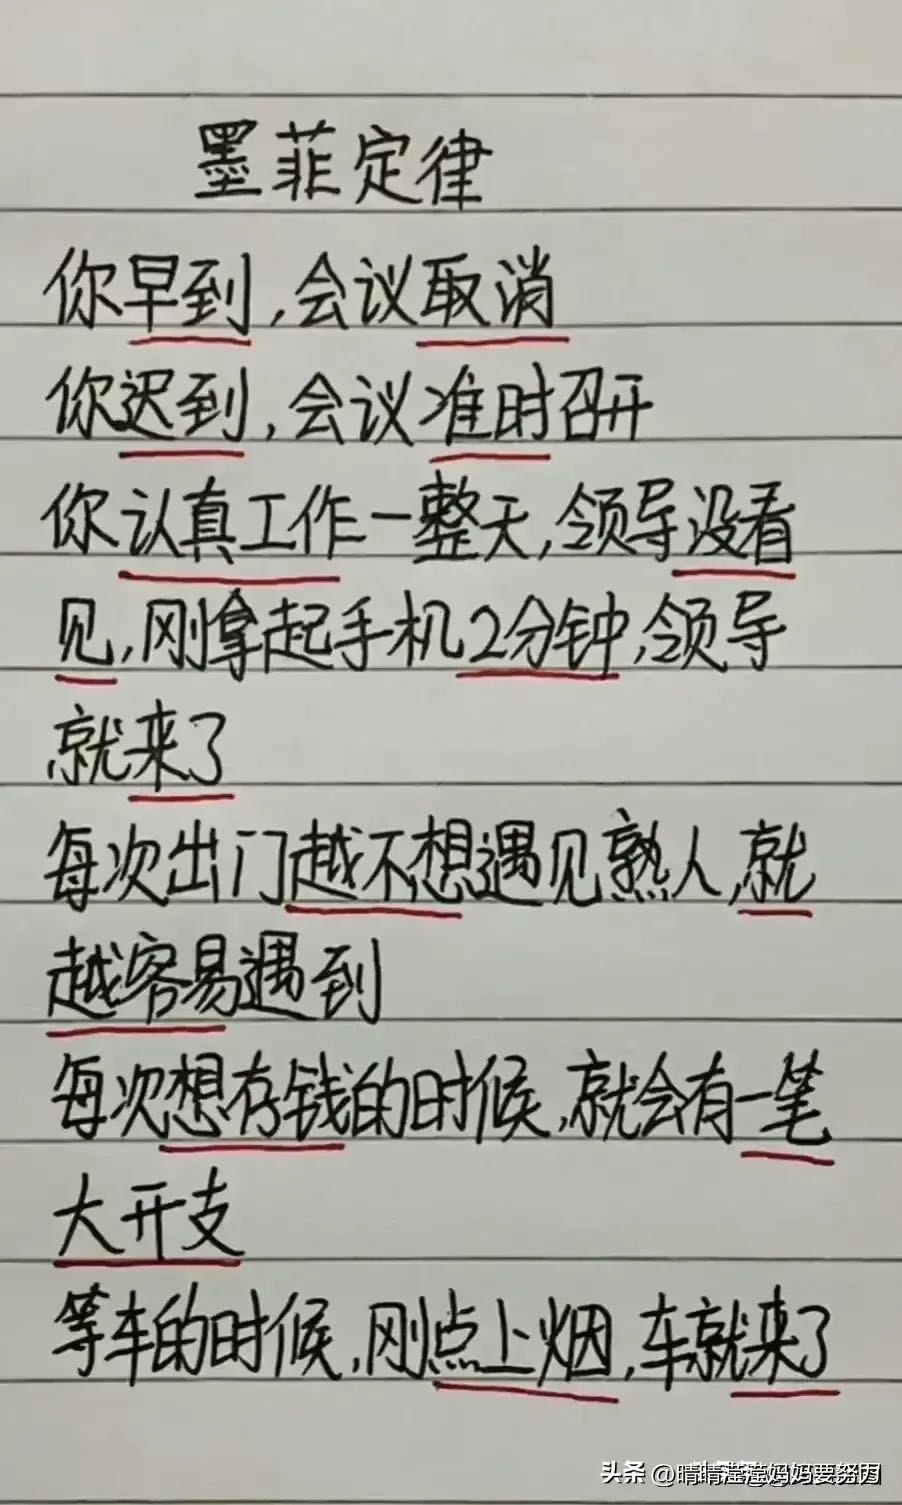 墨菲定律
你早到,会议取消
你迟到,会议准时召开
你认真工作一整天,领导没看
见,刚拿起手机2分钟,领导
就来了
每次出门越不想遇见熟人,就
越容易遇到
每次想存钱的时候,就会有一笔
大开支
等车的时候,刚点上烟,车就来了
头条 @晴晴滢滢妈妈要努力